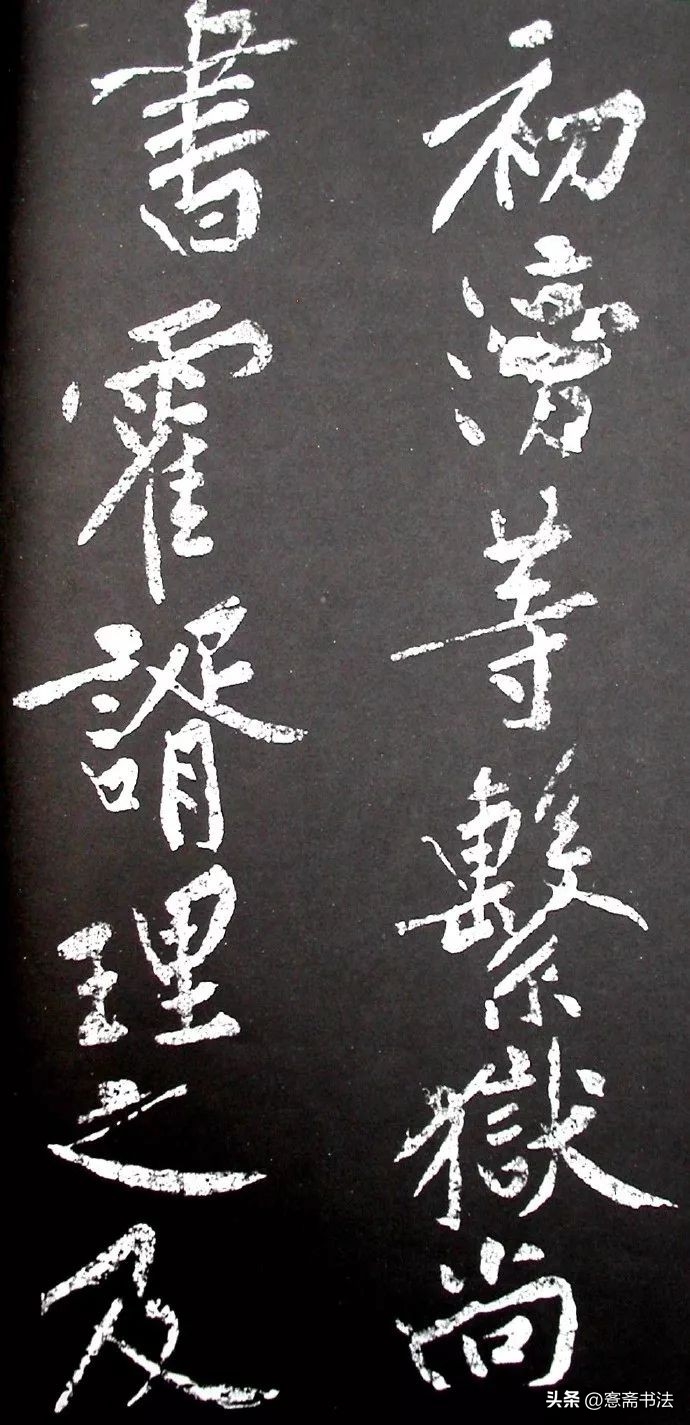 初滂等繫獄尚
書霍諝理之及
头条 @愙斋书法